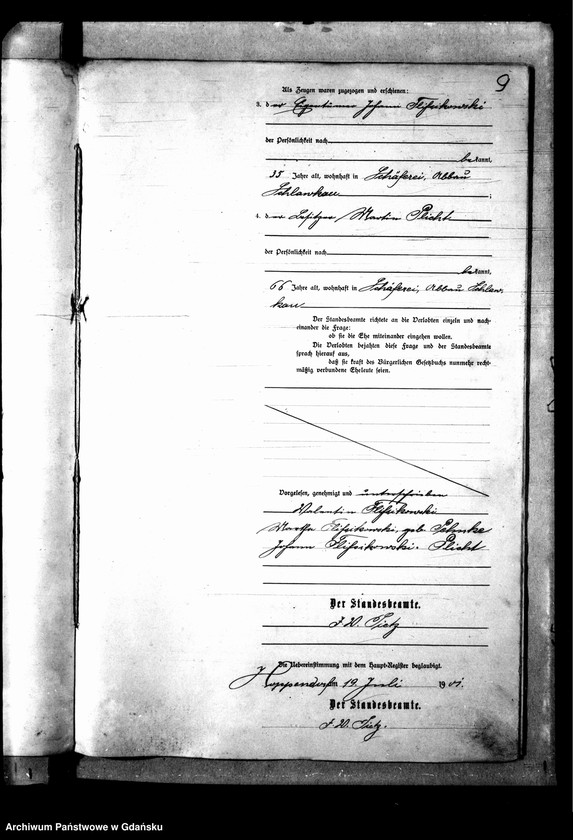 9
Als Zeugen waren zugezogen und erschienen:
3. der Eigentümer Johann
der Persönlichkeit nach
bekannt,
35 Jahre alt, wohnhaft in Schäferei, Abbau
Schlawkau;
4. der Besitzer Martin Plicht
der Persönlichkeit nach
bekannt,
66 Jahre alt, wohnhaft in Schäferei, Abbau Schlaw-
kau
Der Standesbeamte richtete an die Verlobten einzeln und nach-
einander die Frage:
ob sie die Ehe miteinander eingehen wollen.
Die Verlobten bejahten diese Frage und der Standesbeamte
sprach hierauf aus,
daß sie kraft des Bürgerlichen Gesetzbuchs nunmehr recht-
mäßig verbundene Eheleute seien.
Vorgelesen, genehmigt und unterschrieben
Valentin
Martha geb.
Johann Plicht
Der Standesbeamte.
Tietz
Die Uebereinstimmung mit dem Haupt-Register beglaubigt.
Hoppendorf am 19. Juli 1901.
Der Standesbeamte.
Tietz.
Archiwum Państwowe w Gdańsku